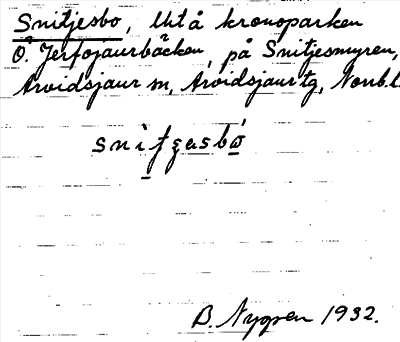 Snitjesbo, lht å kronoparken
Ö. Jerfojaurbäcken, på Snitjesmyren,
Arvidsjaur sn, Arvidsjaur tg, Norrb.l.
B. Nygren 1932.